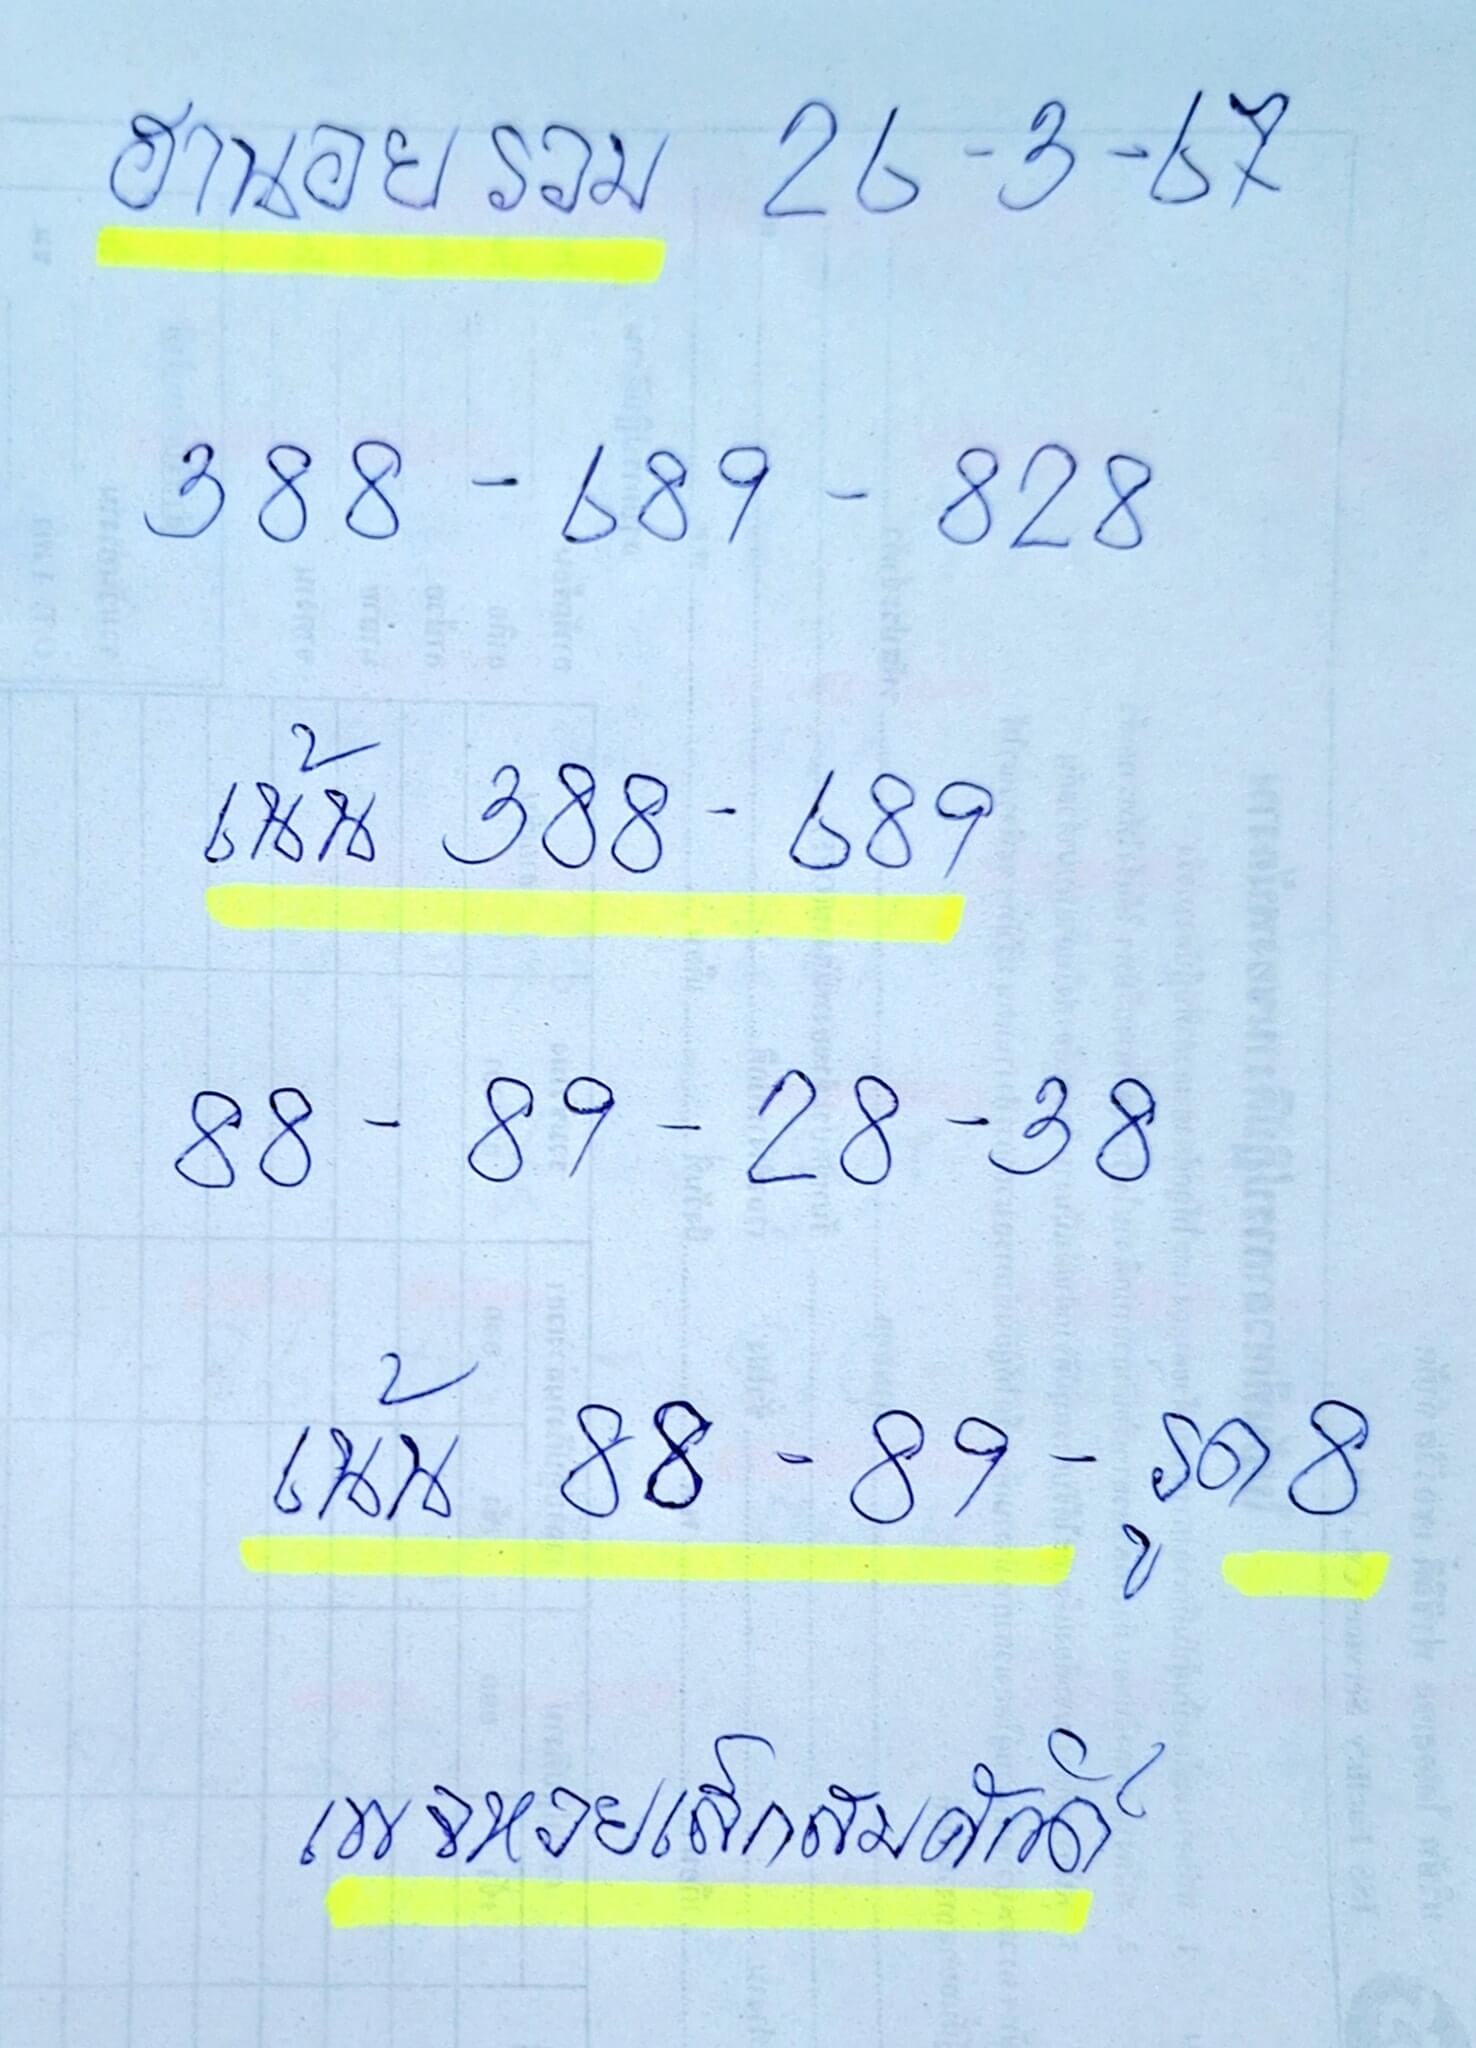 ฮานอย รวม 26-3-67
388 - 689 - 828
เน้น 388 - 689
88 - 89 - 28 - 38
เน้น 88 - 89 - รูด 8
เพจหวยเล็กสมศักดิ์